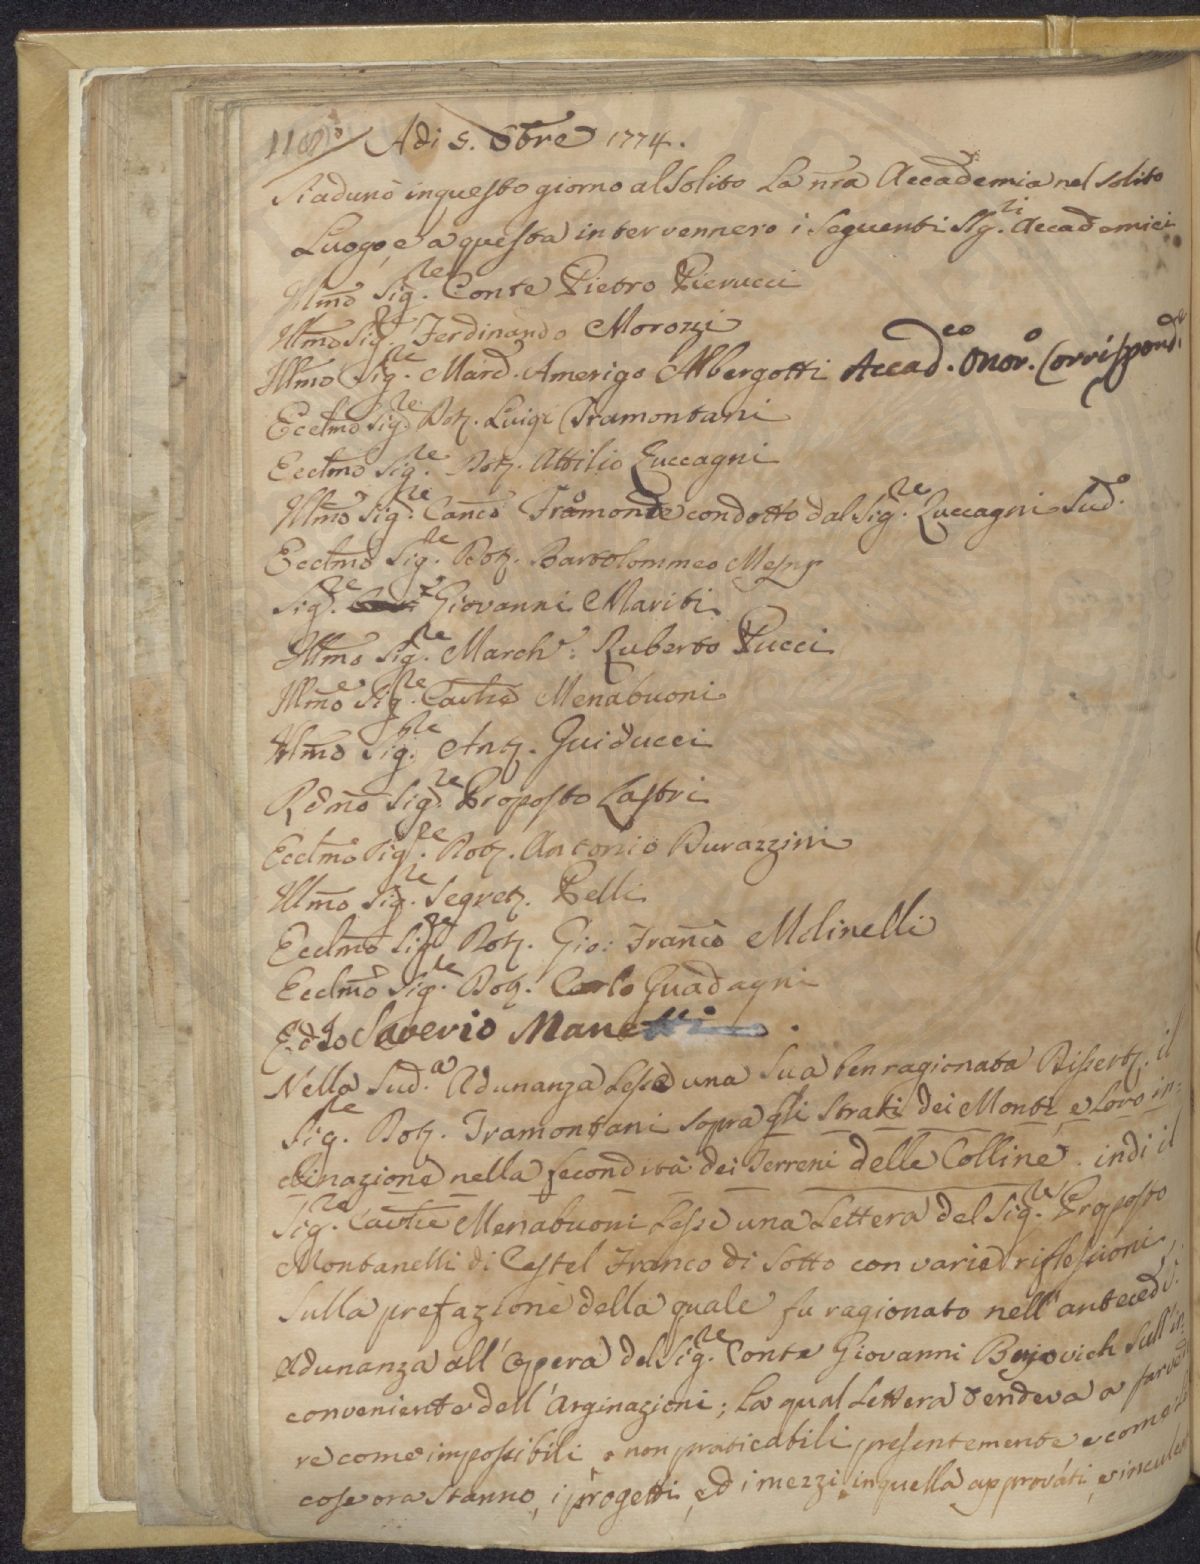 Adi 5. 8bre 1774.
Si adunò in questo giorno al solito La nrã Accademia nel solito
Luogo, e a questa intervennero i Seguenti Sig.ri Accademici
Illmo Sig.re Conte Pietro Pierucci
Illmo Sig.re Ferdinando Morozzi
Illmo Sig.re Marc. Amerigo Albergotti Accad.co Onor.o Corrispond.e
Ecclmo Sig.re Dott. Luigi Tramontani
Ecclmo Sig.re Dott. Attilio Zuccagni
Illmo Sig.re Canco Tramonte condotto dal Sig.re Zuccagni Sud.o
Ecclmo Sig.re Dott. Bartolommeo Mesny
Sig.re Giovanni Mariti
Illmo Sig.re March.e: Ruberto Pucci
Illmo Sig.re Cavlre Menabuoni
Illmo Sig.re Ant. Guiducci
Rdmo Sig.re Proposto Lastri
Ecclmo Sig.re Dott. Antonio Durazzini
Illmo Sig.re Segret. Pelli
Ecclmo Sig.re Dott. Gio: Franco Molinelli
Ecclmo Sig.re Dott. Carlo Guadagni
E d Io Saverio Manetti.
Nella Sud.a Adunanza Lesse una Sua ben ragionata Dissert. il
Sig.re Dott. Tramontani sopra gli Strati dei Monti, e Loro in=
clinazione nella fecondità dei Terreni delle Colline. indi il
Sig.re Cavlre Menabuoni Lesse una Lettera del Sig.re Proposto
Montanelli di Castel Franco di Sotto con varie riflessioni
Sulla prefazione della quale fu ragionato nell'anteced.
Adunanza all'Opera del Sig.re Conte Giovanni Bujovich Sull'in
conveniente dell'Arginazioni; La qual Lettera tendeva a far vede
re come impossibili, e non praticabili presentemente e come le
cose ora stanno, i progetti, ed i mezzi in quella approvati, e